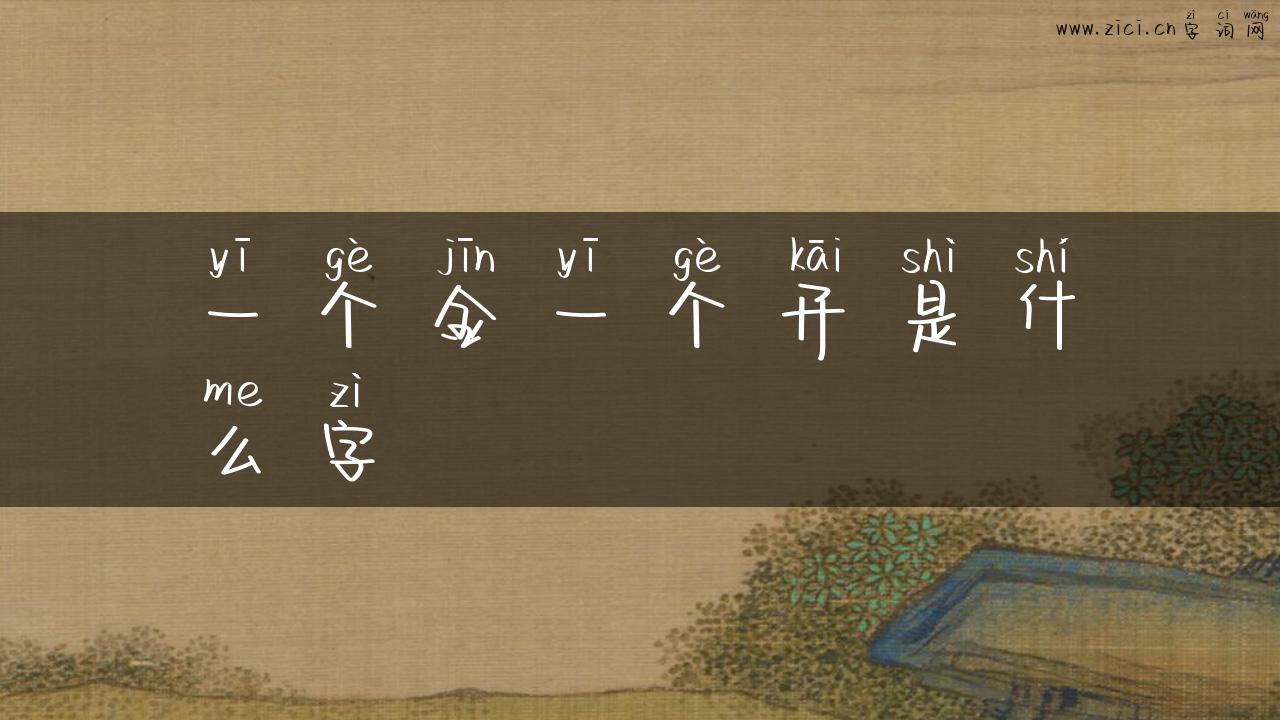 zì cí wǎng
www.zici.cn 字词网
yī gè jīn yī gè kāi shì shí
一个金一个开是什
me zì
么字